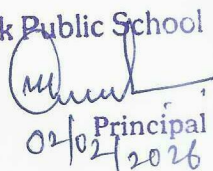 k Public School
Principal
02/02/2026